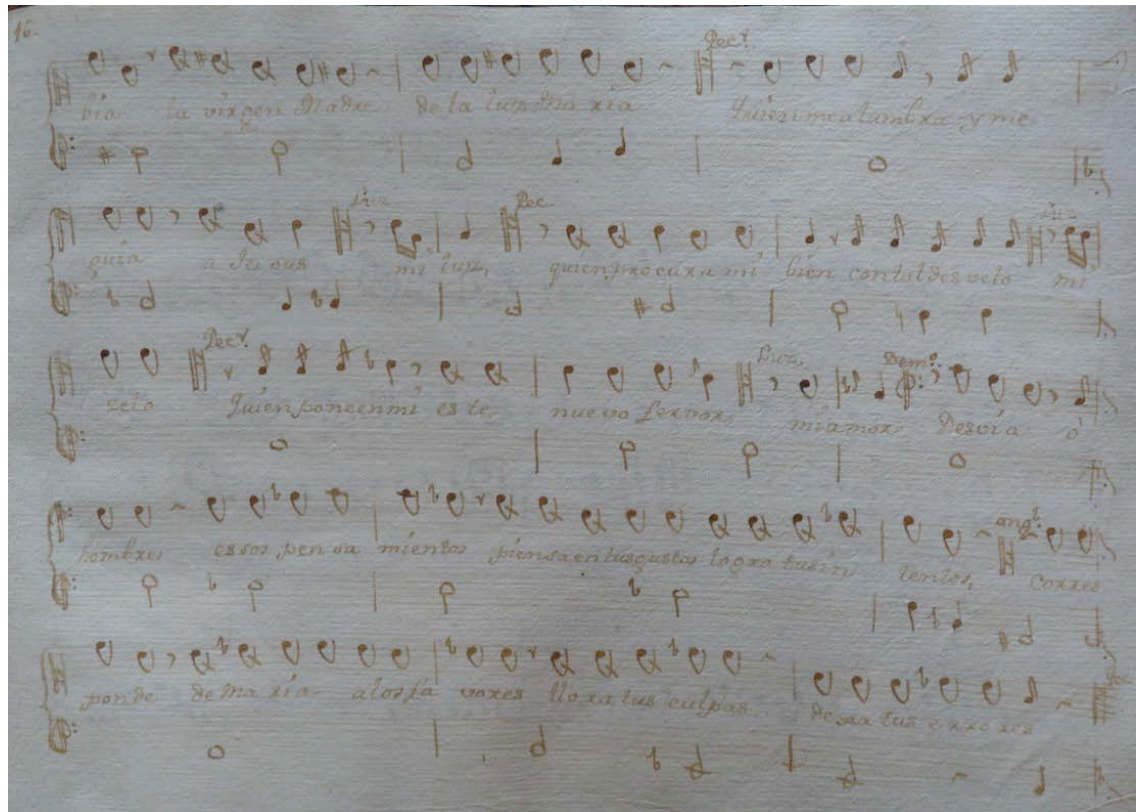 16.
Pec.r
bia la virgen Madre de la luz Maria Quien me alumbra y me
Luz Pec. Luz
guia a Jesus mi luz, quien procura mi bien con tal desvelo mi
Pec.r Luz, Dem.o
zelo Quien pone en mi este nuevo fervor, mi amor Desvia ò
ang.l
hombre essos pensamientos piensa en tus gustos logra tus intentos, Corres
Pec
ponde de Maria a los favores llora tus culpas dexa tus errores